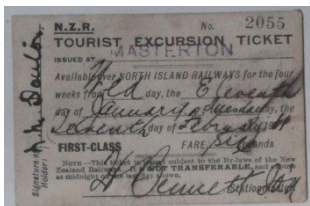 N.Z.R. No. 2055
TOURIST EXCURSION TICKET
MASTERTON
ISSUED AT
Available over NORTH ISLAND RAILWAYS for the four
weeks from Wed day, the Eleventh
day of January to Wednesday, the
Seventh day of
FIRST-CLASS FARE Six Pounds
NOTE—This ticket is issued subject to the By-laws of the New
Zealand Railways. It is NOT TRANSFERABLE, and
at midnight on the last day shown.
Stationmaster
Signature of Holder: